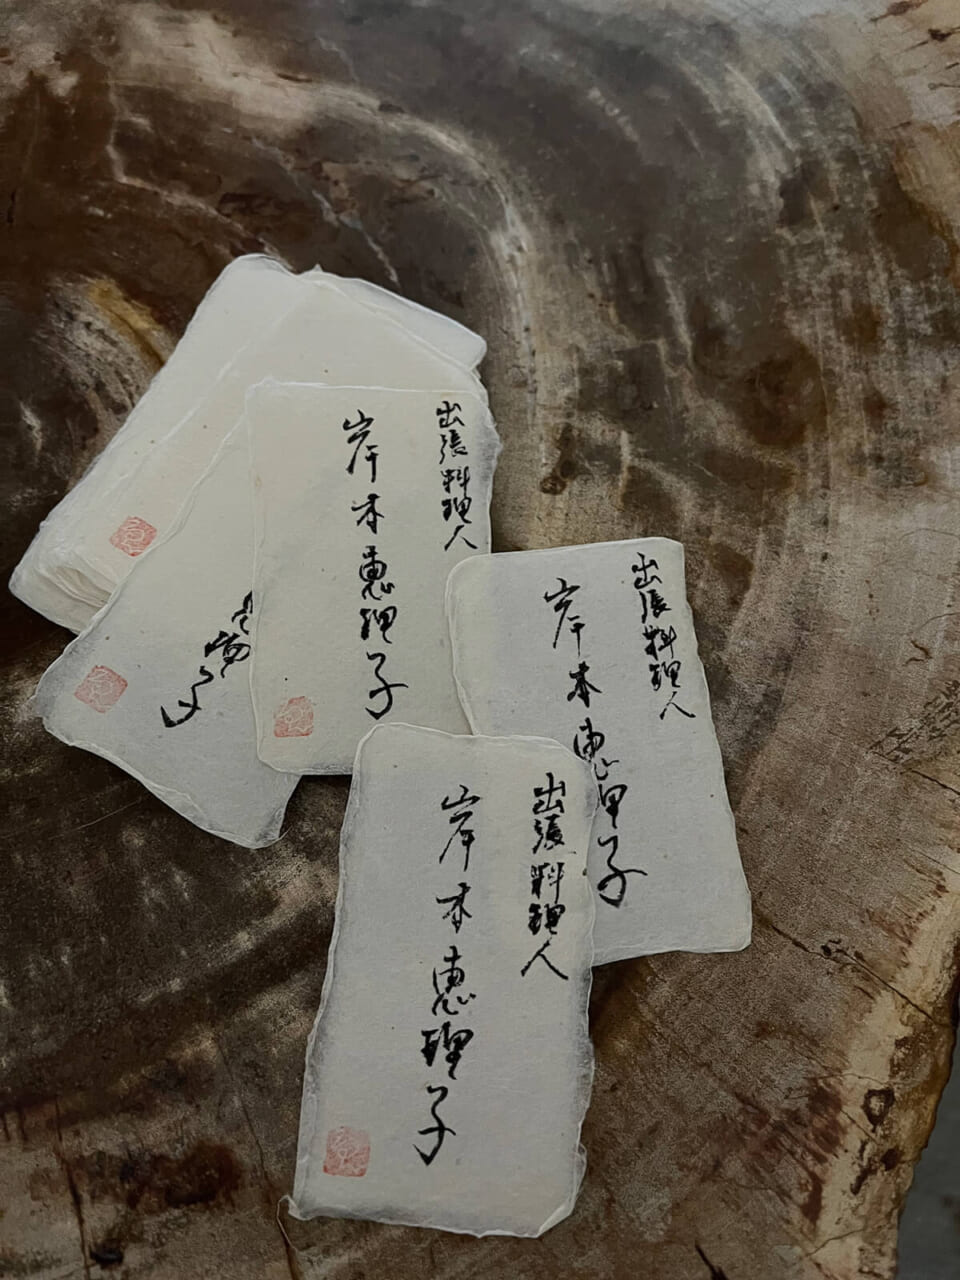 出張料理人
岸本恵理子
出張料理人
岸本恵理子
出張料理人
岸本恵理子